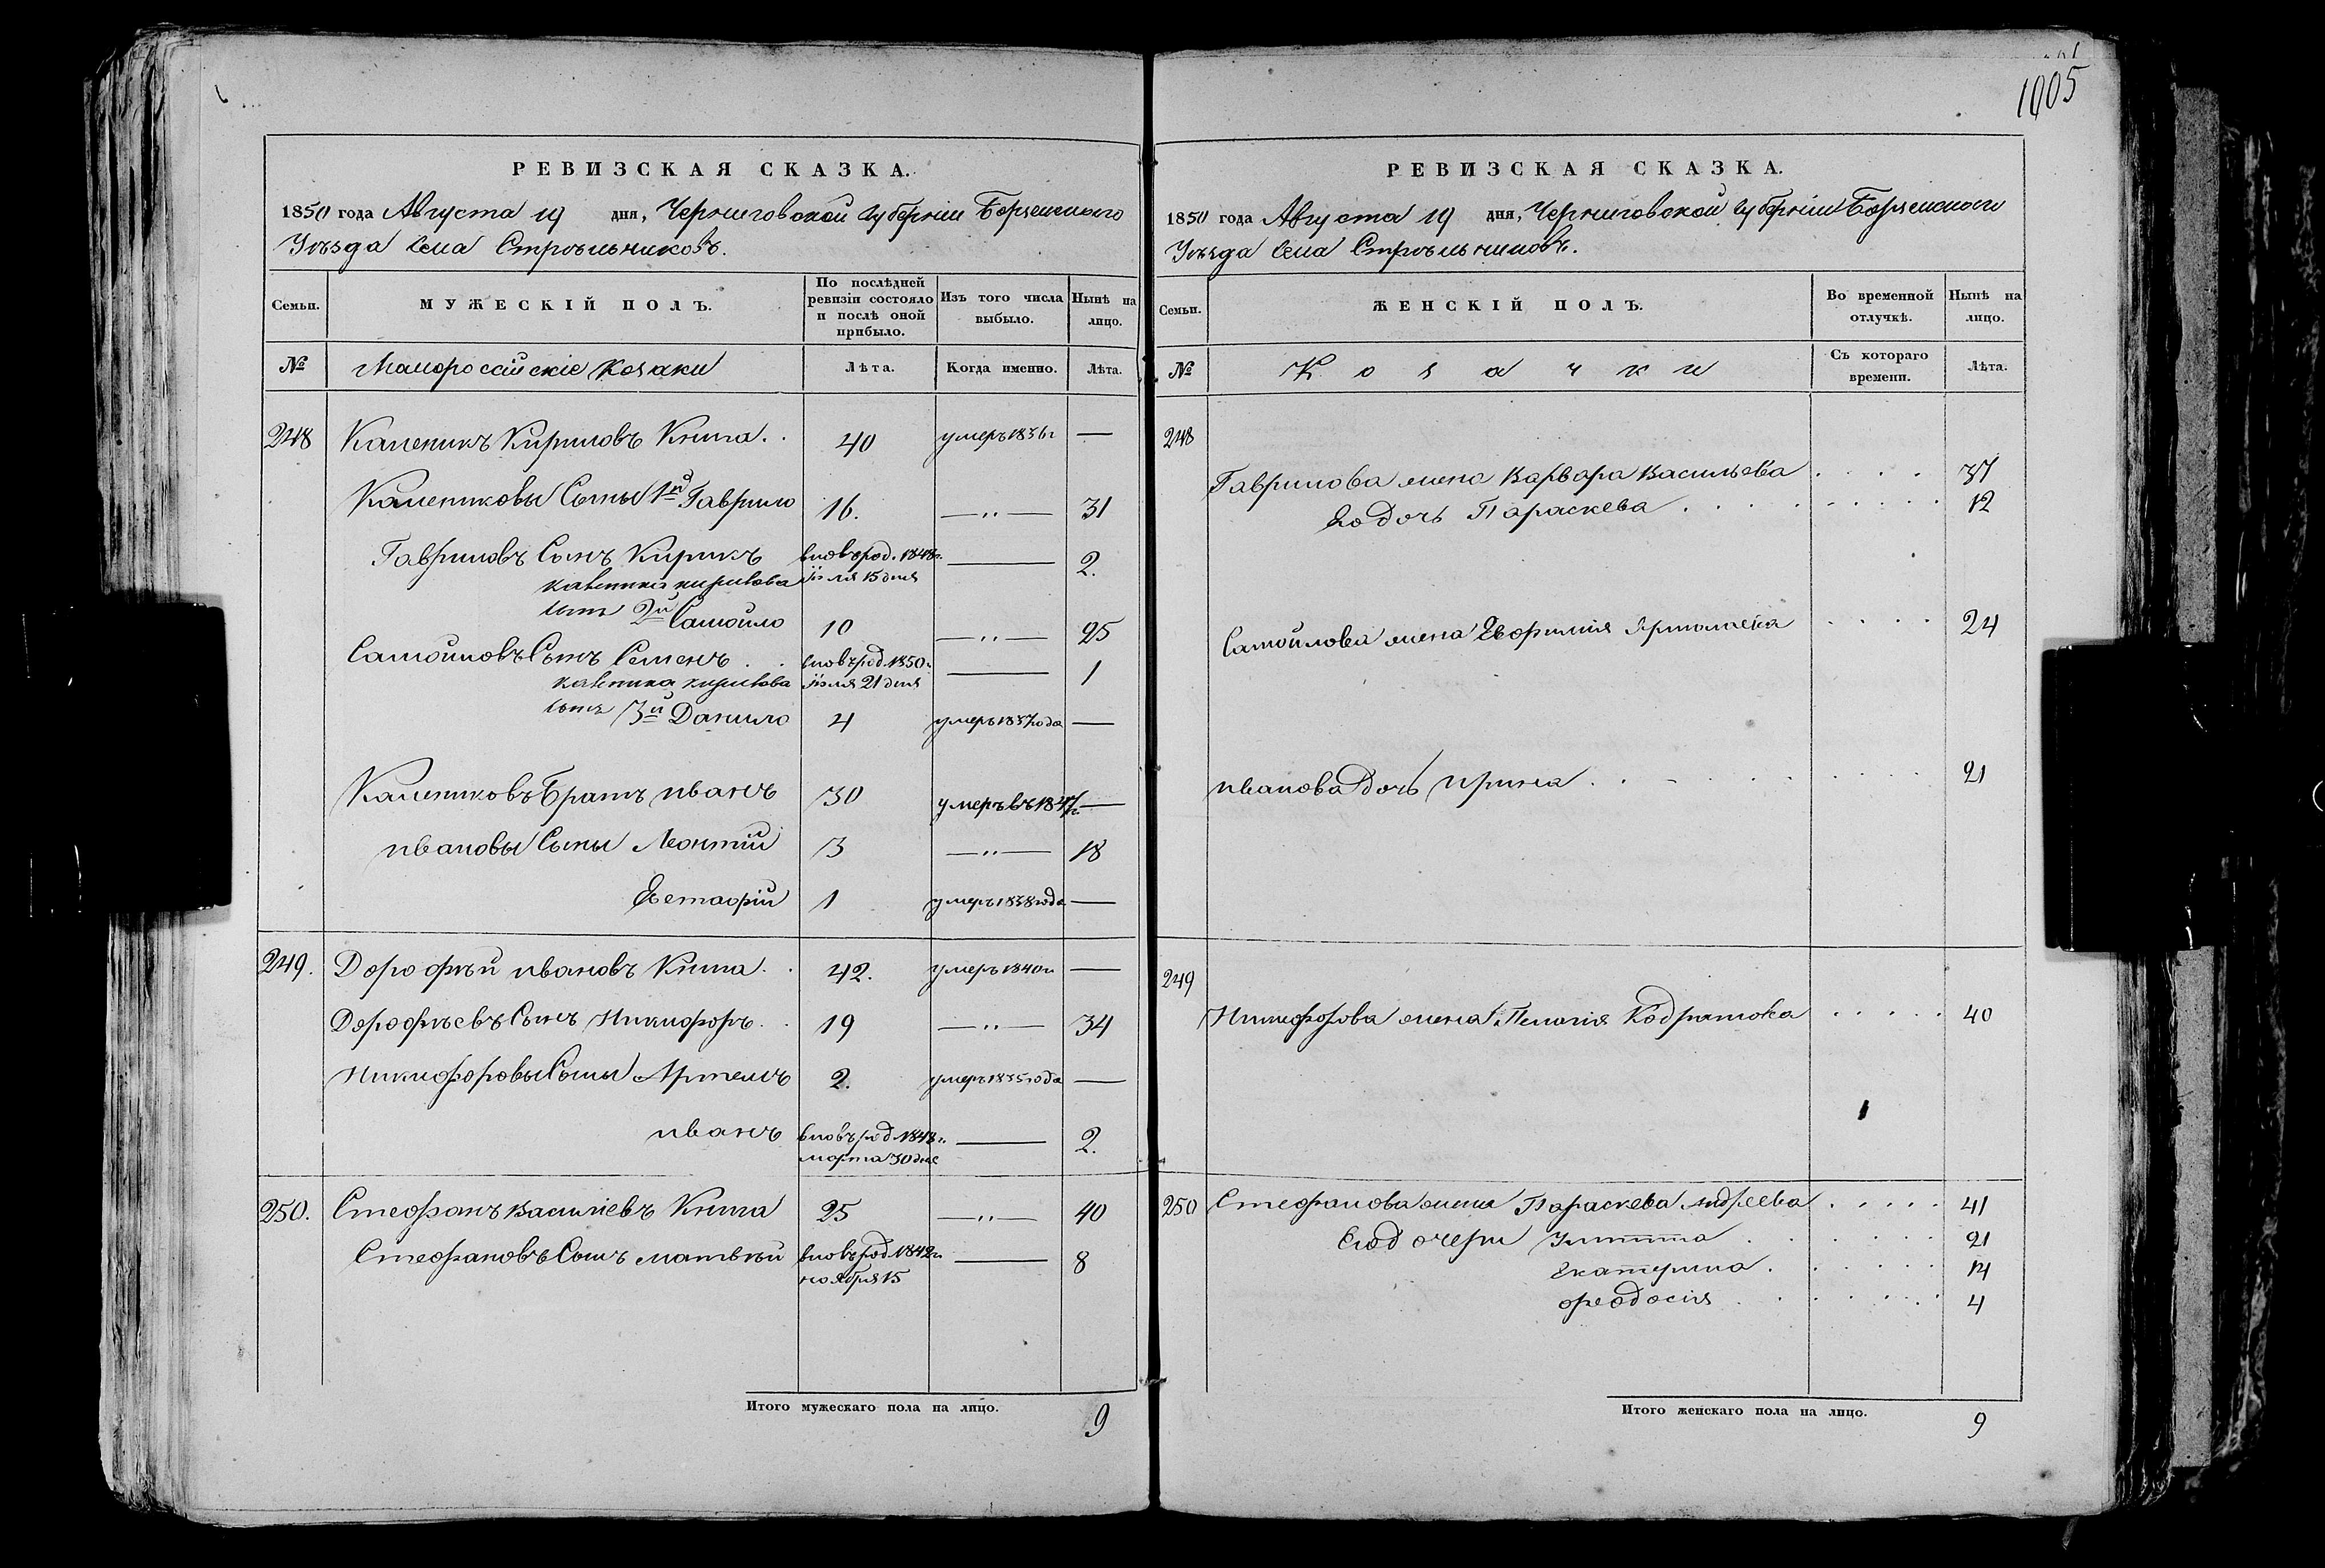 1005
РЕВИЗСКАЯ СКАЗКА.
1850 года Августа 19 дня, Черниговской губерніи Борзенского
Уѣзда села Стрѣльниковъ.
Семьи. МУЖЕСКІЙ ПОЛЪ. По послѣдней ревизіи состояло и послѣ оной прибыло. Изъ того числа выбыло. Нынѣ на лицо.
№ Малороссійскіе Козаки Лѣта. Когда именно. Лѣта.
248 Каленикъ Кириловъ Книга. 40 умеръ 1836г —
Калениковы Сыны 1й Гаврило 16. —„— 31
Гавриловъ Сынъ Кирикъ вновьрод. 1848г. — 2.
каленика кирилова іюля 15 дня
сынъ 2й Самойло 10 —„— 25
Самойловъ Сынъ Семенъ вновьрод. 1850г. — 1
каленика кирилова іюля 21 дня
сынъ 3й Данило 4 умеръ 1837года —
Калениковъ Братъ иванъ 30 умеръ въ 1847г. —
ивановы Сыны Леонтій 3 —„— 18
Евстафій 1 умеръ 1838года —
249. Дорофѣй ивановъ Книга 42. умеръ 1840г —
Дорофѣевъ Сынъ Никифоръ 19 —„— 34
Никифоровы Сыны Артемъ 2. умеръ 1835года —
иванъ вновьрод. 1848г. — 2.
марта 30 дня
250. Стефанъ Василіевъ Книга 25 —„— 40
Стефановъ Сынъ матвѣй вновьрод. 1842г. — 8
ноября 15
Итого мужескаго пола на лицо. 9
РЕВИЗСКАЯ СКАЗКА.
1850 года Августа 19 дня, Черниговской губерніи Борзенского
Уѣзда села Стрѣльниковъ.
Семьи. ЖЕНСКІЙ ПОЛЪ. Во временной отлучкѣ. Нынѣ на лицо.
№ Козачки Съ котораго времени. Лѣта.
248
Гаврилова жена Варвара Васильева 37
Его дочь Параскева 12
Самойлова жена Евфимія Ярмолаева 24
иванова Дочь ирина 21
249
Никифорова жена Пелагія Кодратова 40
250 Стефанова жена Параскева Андреева 41
Его дочери Улита 21
Екатерина 14
феодосія 4
Итого женскаго пола на лицо. 9